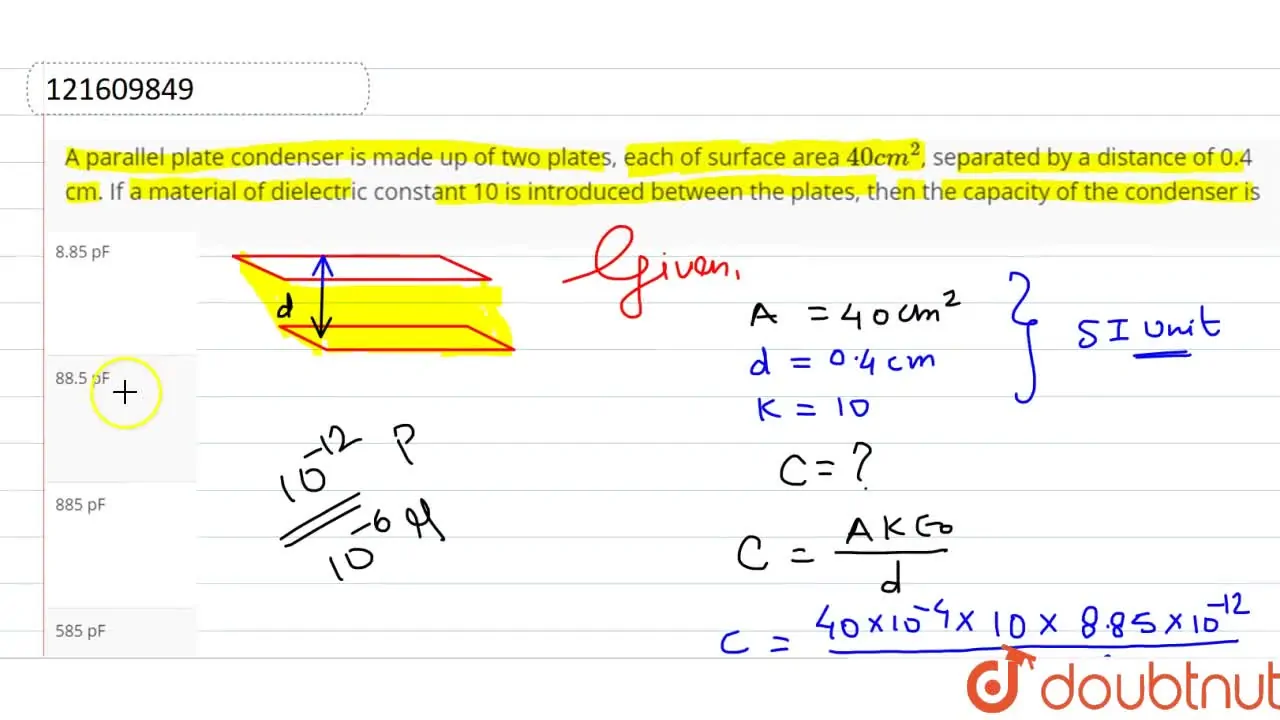 121609849
A parallel plate condenser is made up of two plates, each of surface area 40cm², separated by a distance of 0.4
cm. If a material of dielectric constant 10 is introduced between the plates, then the capacity of the condenser is
8.85 pF
88.5 pF
885 pF
585 pF
d
10⁻¹² P
10⁻⁶ μ
Given,
A = 40 cm²
d = 0.4 cm
K = 10
SI Unit
C = ?
C = A K ϵ₀ / d
C = 40 × 10⁻⁴ × 10 × 8.85 × 10⁻¹²
doubtnut